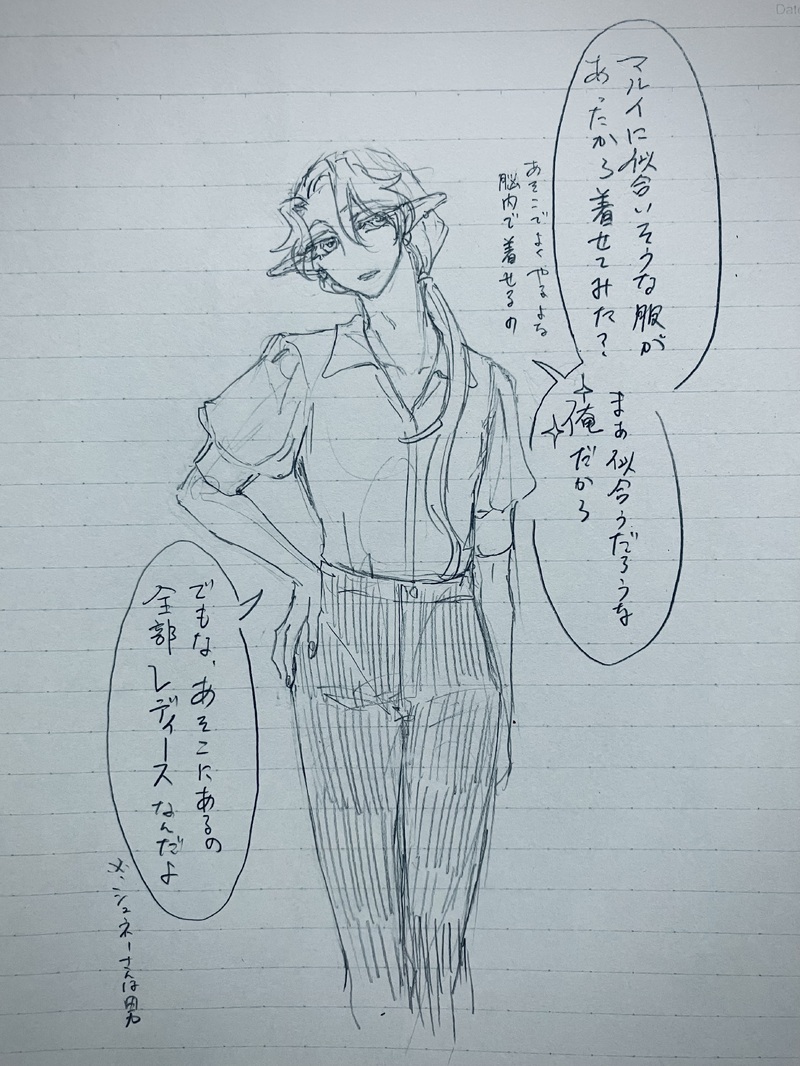 Date
マルイに似合いそうな服が
あったから着せてみた？
あそこでよくやるよな
脳内で着せるの
まぁ似合うだろうな
俺だから
でもな、あそこにあるの
全部レディースなんだよ
シュネーさんは男